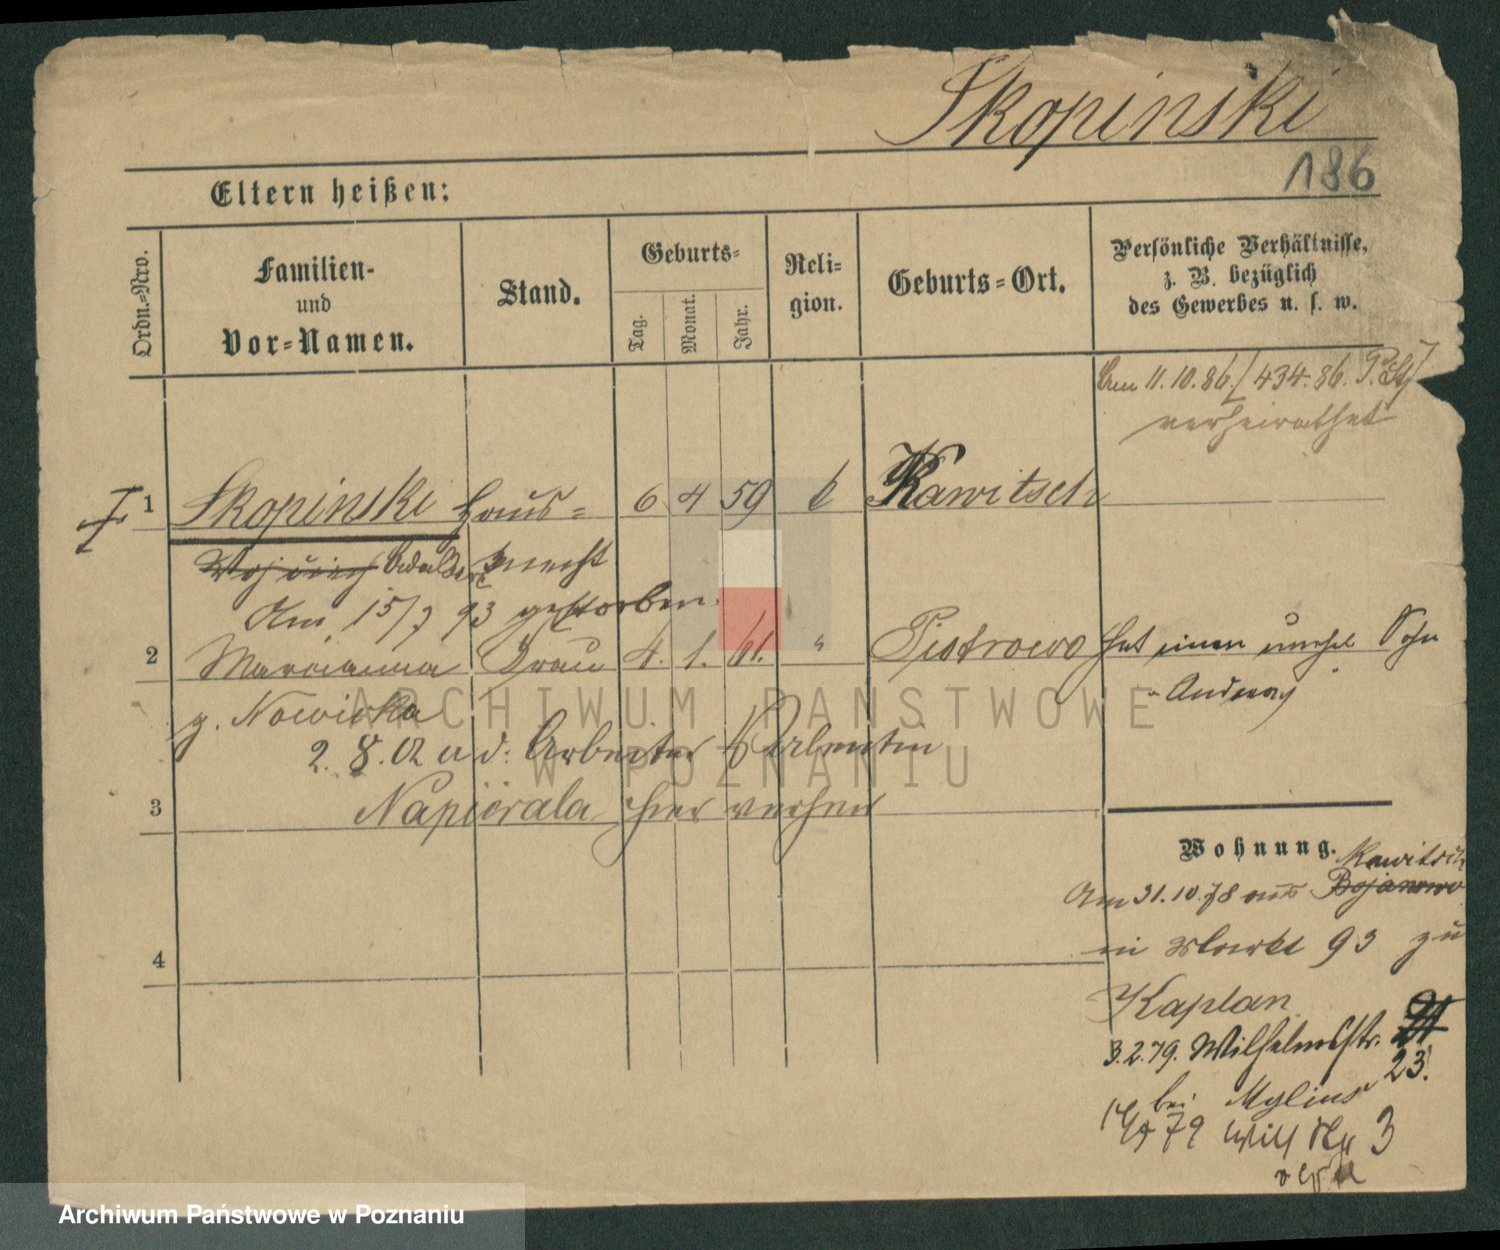 Skopinski
186
Eltern heißen:
Ordn.-Nro.
Familien-
und
Vor-Namen.
Stand.
Geburts-
Tag.
Monat.
Jahr.
Reli-
gion.
Geburts-Ort.
Persönliche Verhältnisse,
z. B. bezüglich
des Gewerbes u. s. w.
Am 11.10.86. 434.86.
verheirathet
1 Skopinski Haus- 6 4 59 k Rawitsch
knecht
Am 15/7 93 gestorben.
2 Marianna Frau 4. 1. 61. " Piotrowo hat einen unehel Sohn
Andreas
g. Nowicka
2. 8. 02 a. d. Arbeiter Valentin
3 Napierala hier verheir
Wohnung.
Rawitsch
Am 31.10.78 aus Bojanowo
in Markt 93 zu
4
Kaplan
3.2.79. Wilhelmstr. 21
23.
bei Mylius
79 Wilh 3
ARCHIWUM PAŃSTWOWE
W POZNANIU
Archiwum Państwowe w Poznaniu